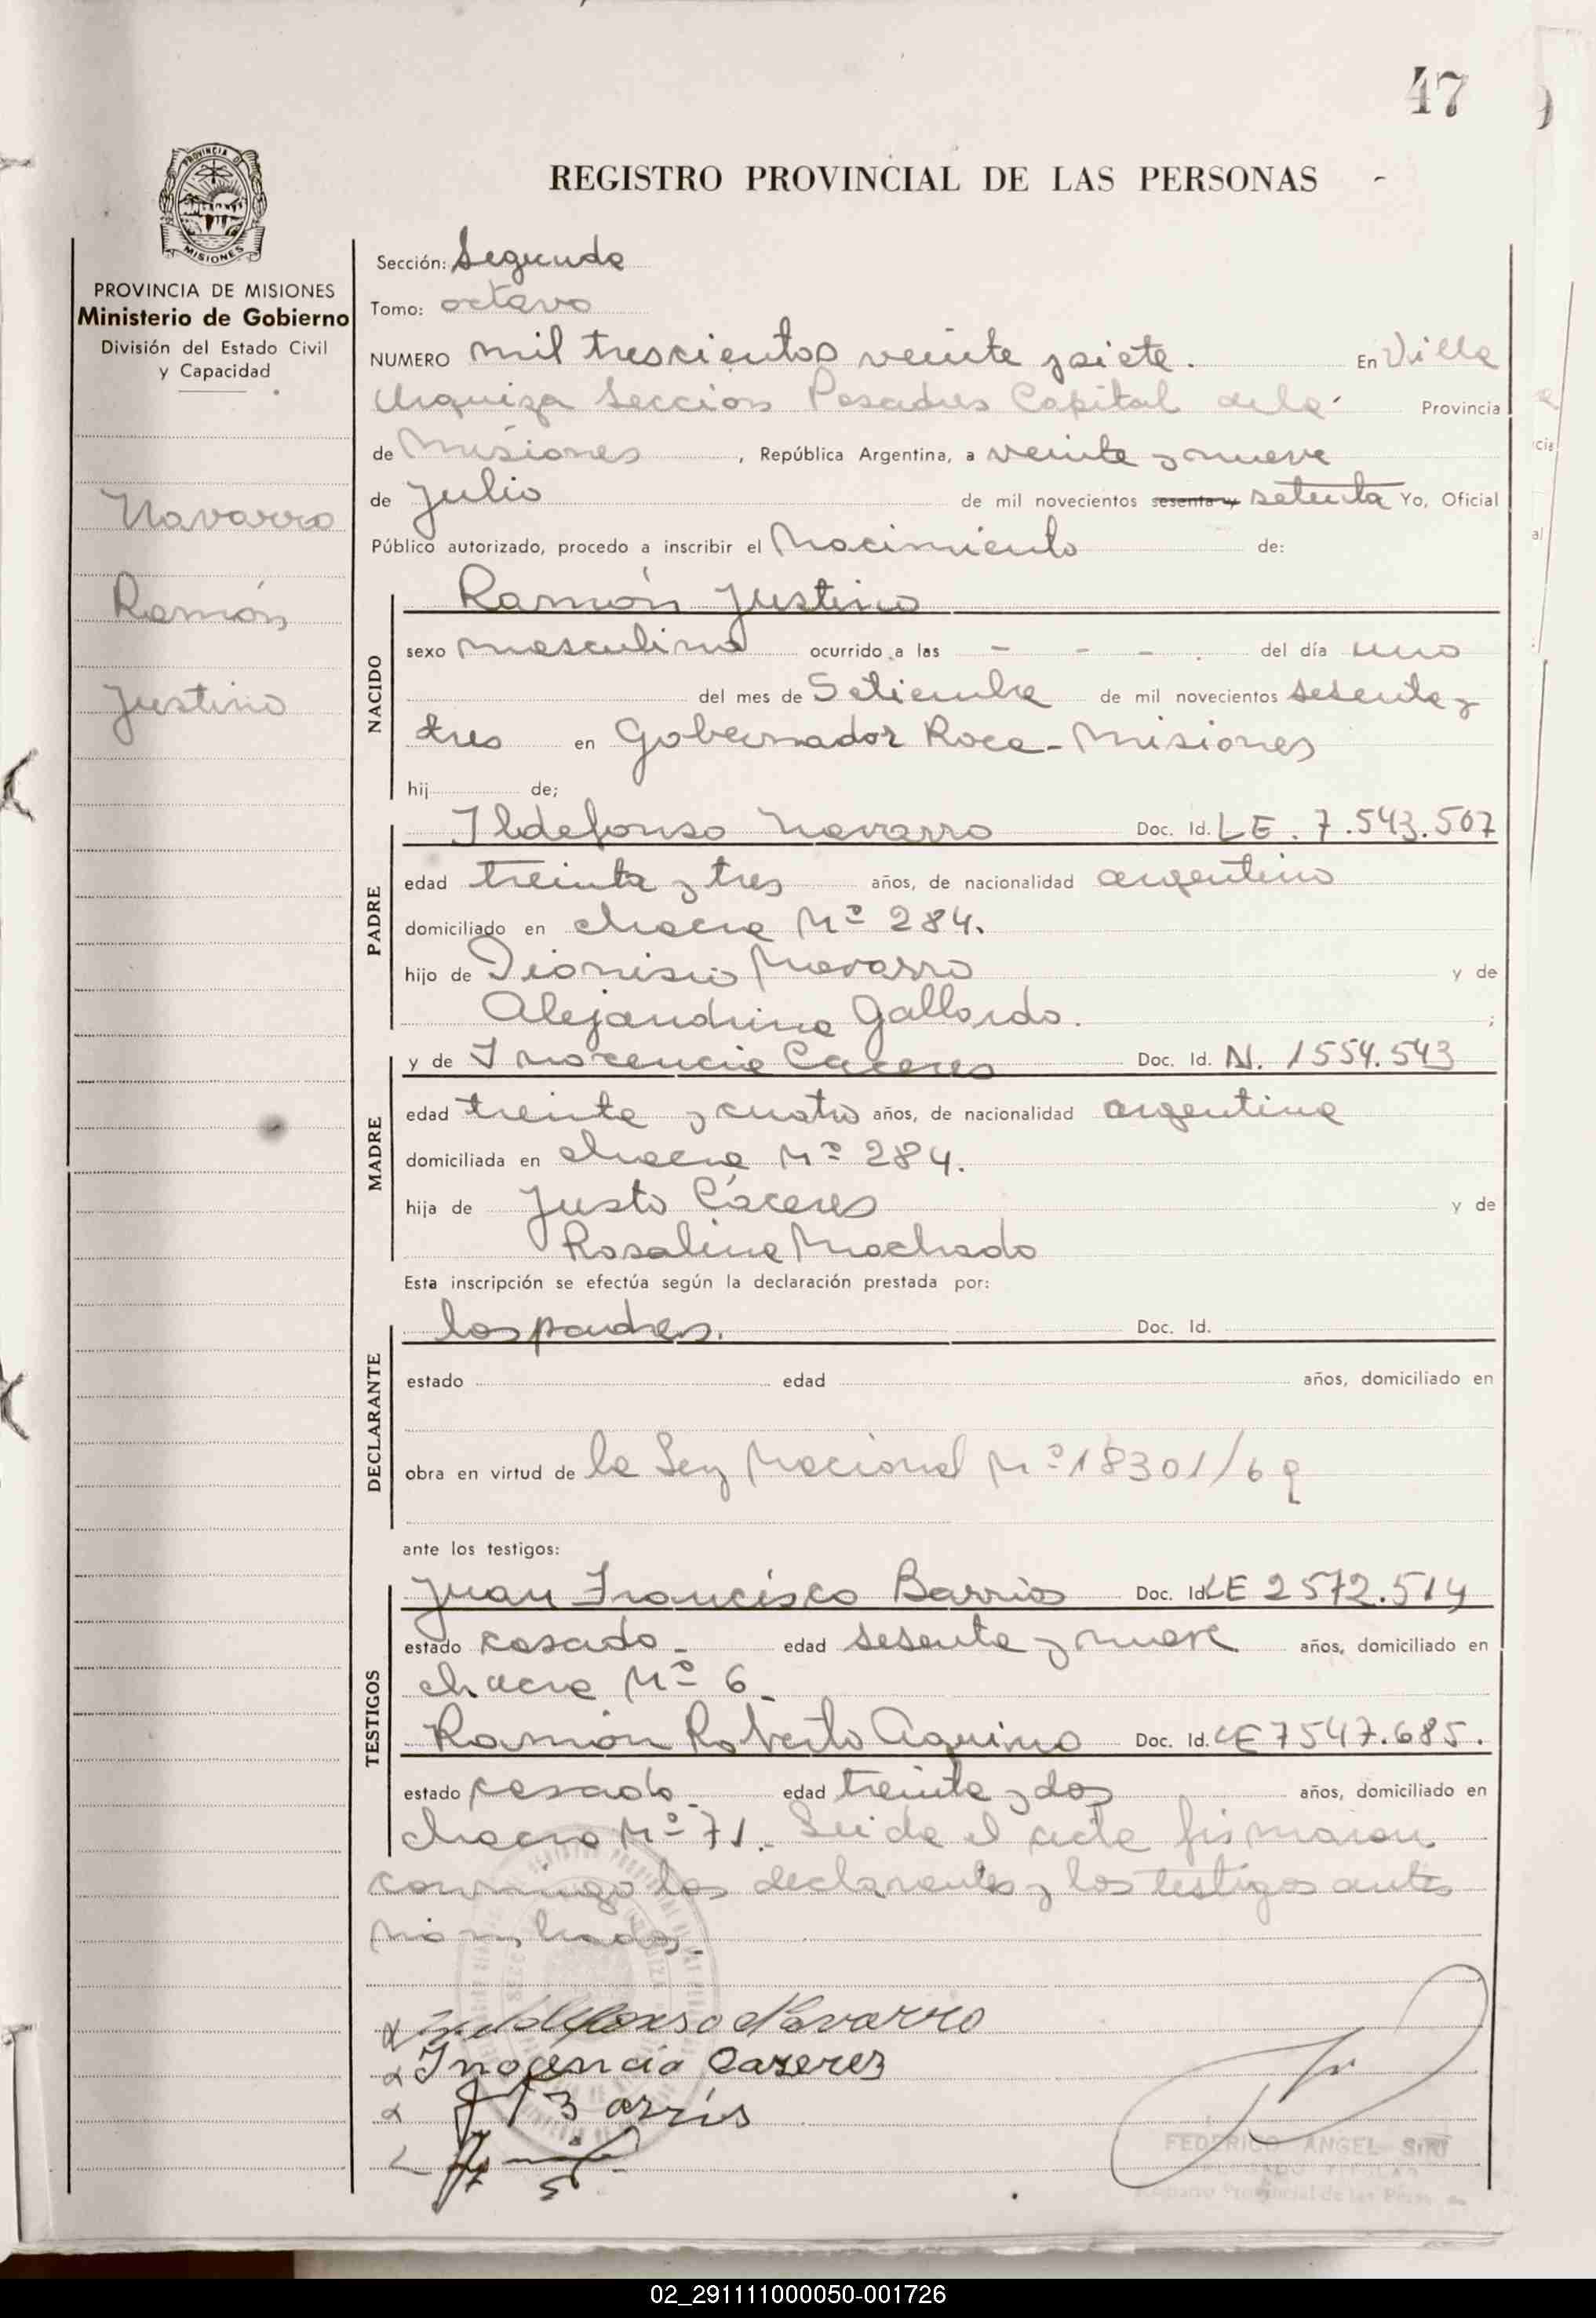 47
REGISTRO PROVINCIAL DE LAS PERSONAS
PROVINCIA DE MISIONES
Ministerio de Gobierno
División del Estado Civil
y Capacidad
Navarro
Ramón
Justino
Sección: Segunda
Tomo: octavo
NUMERO mil trescientos veinte y siete. En Villa
Urquiza Sección Posadas Capital de la Provincia
de Misiones, República Argentina, a veinte y nueve
de Julio de mil novecientos sesenta y setenta Yo, Oficial
Público autorizado, procedo a inscribir el Nacimiento de:
Ramón Justino
NACIDO
sexo masculino ocurrido a las - - - . del día uno
del mes de Setiembre de mil novecientos sesenta y
tres en Gobernador Roca - Misiones
hij de;
PADRE
Ildefonso Navarro Doc. Id. LE. 7.543.507
edad treinta y tres años, de nacionalidad argentino
domiciliado en chacra Nº 284.
hijo de Dionisio Navarro y de
Alejandrina Gallardo. ;
MADRE
y de Inocencia Caceres Doc. Id. N. 1554.543
edad treinta y cuatro años, de nacionalidad argentina
domiciliada en chacra Nº 284.
hija de Justo Cáceres y de
Rosalina Machado
Esta inscripción se efectúa según la declaración prestada por:
DECLARANTE
los padres. Doc. Id.
estado edad años, domiciliado en
obra en virtud de la Ley Nacional Nº 18301/69
ante los testigos:
TESTIGOS
Juan Francisco Barrios Doc. Id. LE 2572.514
estado casado - edad sesenta y nueve años, domiciliado en
chacra Nº 6 -
Ramón Roberto Aquino Doc. Id. LE 7547.685.
estado casado - edad treinta y dos años, domiciliado en
chacra Nº 71. Leida el acta firmaron
conmigo los declarantes y los testigos antes
nombrados.-
Ildefonso Navarro
Inocencia Caseres
J F Barrios
FEDERICO ANGEL SIRI
Registro Provincial de las Personas
02_291111000050-001726